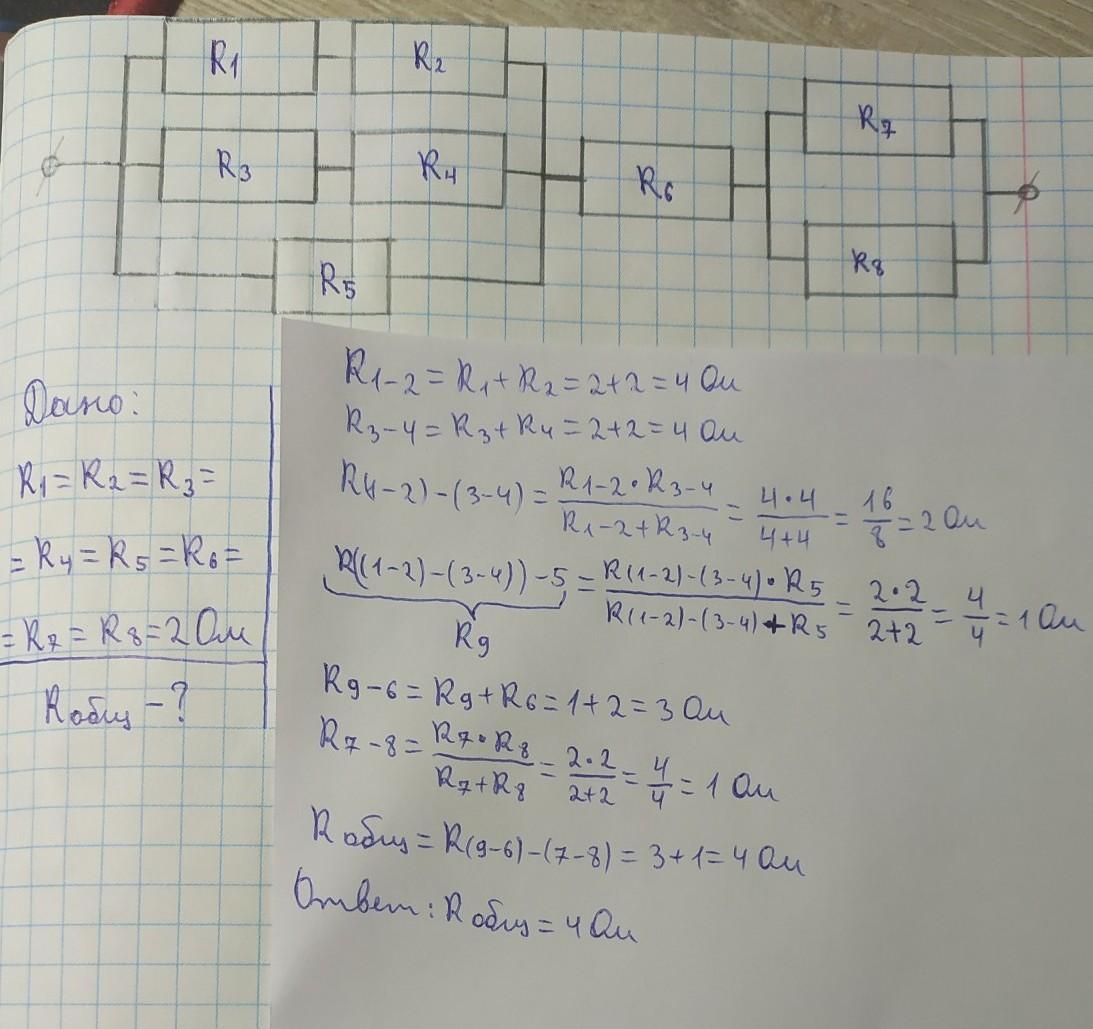 R1 R2
R3 R4 R6 R7
R5 R8
Дано:
R1 = R2 = R3 =
= R4 = R5 = R6 =
= R7 = R8 = 2 Ом
Rобщ - ?
R1-2 = R1 + R2 = 2+2 = 4 Ом
R3-4 = R3 + R4 = 2+2 = 4 Ом
R(1-2)-(3-4) = R1-2 • R3-4 / R1-2 + R3-4 = 4•4 / 4+4 = 16 / 8 = 2 Ом
R((1-2)-(3-4))-5 = R(1-2)-(3-4) • R5 / R(1-2)-(3-4) + R5 = 2•2 / 2+2 = 4 / 4 = 1 Ом
R9
R9-6 = R9 + R6 = 1+2 = 3 Ом
R7-8 = R7 • R8 / R7 + R8 = 2•2 / 2+2 = 4 / 4 = 1 Ом
Rобщ = R(9-6)-(7-8) = 3+1 = 4 Ом
Ответ: Rобщ = 4 Ом